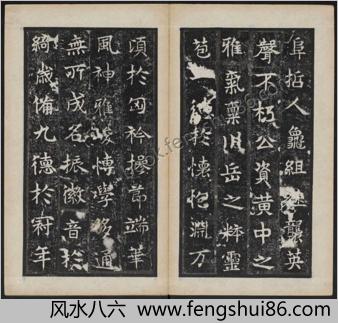 阜哲人龜組継襲英
聲不朽公資黃中之
雅氣稟川岳之粹靈
苞於懷抱淵万
頃於匈衿節端華
風神雅俊博學多通
無所成名振徽音於
綺歲備九德於冠年
www.fengshui86.com
风水八六：www.fengshui86.com